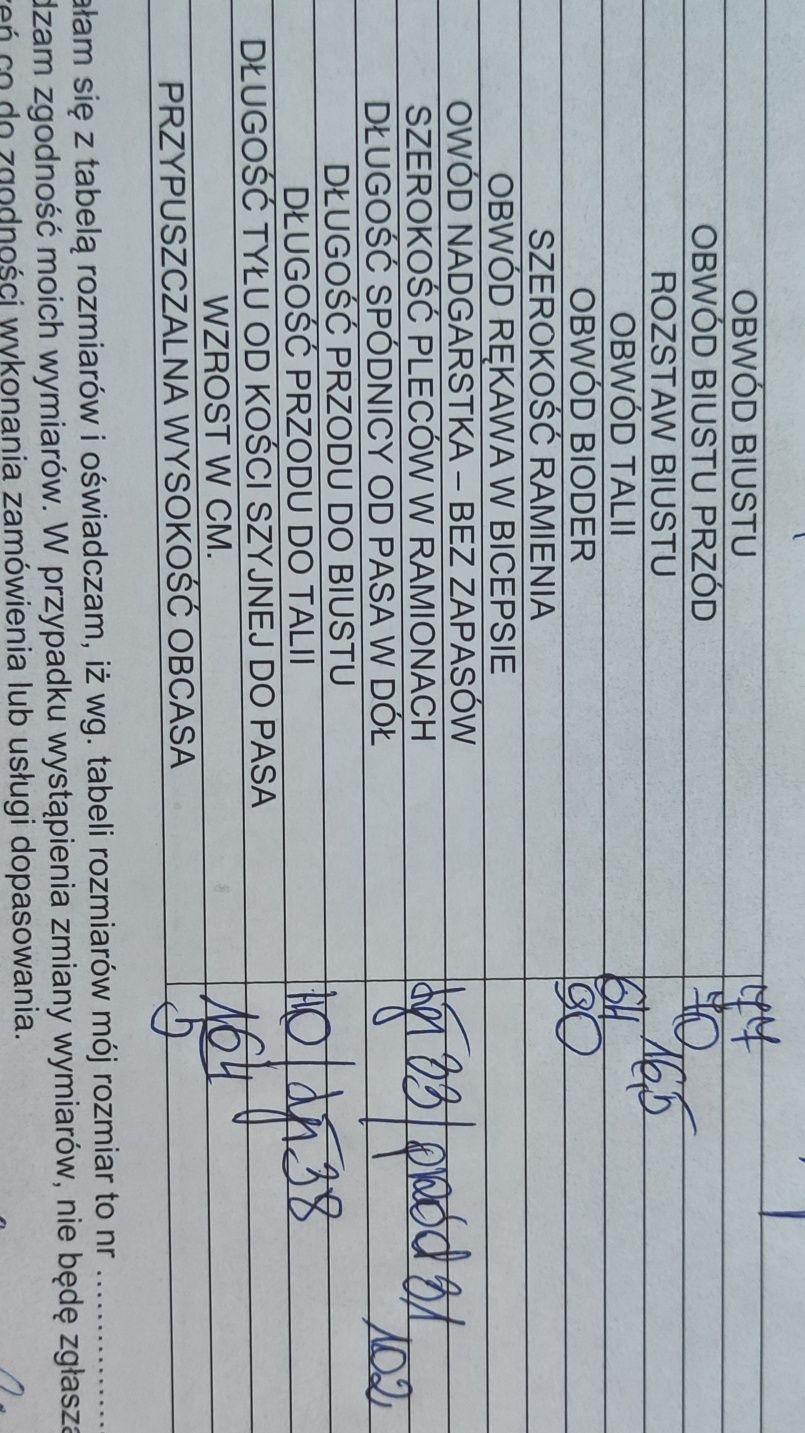 OBWÓD BIUSTU 77
OBWÓD BIUSTU PRZÓD 40
ROZSTAW BIUSTU 16,5
OBWÓD TALII 61
OBWÓD BIODER 90
SZEROKOŚĆ RAMIENIA
OBWÓD RĘKAWA W BICEPSIE
OWÓD NADGARSTKA – BEZ ZAPASÓW
SZEROKOŚĆ PLECÓW W RAMIONACH tył 33 / przód 31
DŁUGOŚĆ SPÓDNICY OD PASA W DÓŁ 102
DŁUGOŚĆ PRZODU DO BIUSTU
DŁUGOŚĆ PRZODU DO TALII 40 / tył 38
DŁUGOŚĆ TYŁU OD KOŚCI SZYJNEJ DO PASA
WZROST W CM. 164
PRZYPUSZCZALNA WYSOKOŚĆ OBCASA 5
ałam się z tabelą rozmiarów i oświadczam, iż wg. tabeli rozmiarów mój rozmiar to nr ..............
dzam zgodność moich wymiarów. W przypadku wystąpienia zmiany wymiarów, nie będę zgłasza
eń co do zgodności wykonania zamówienia lub usługi dopasowania.